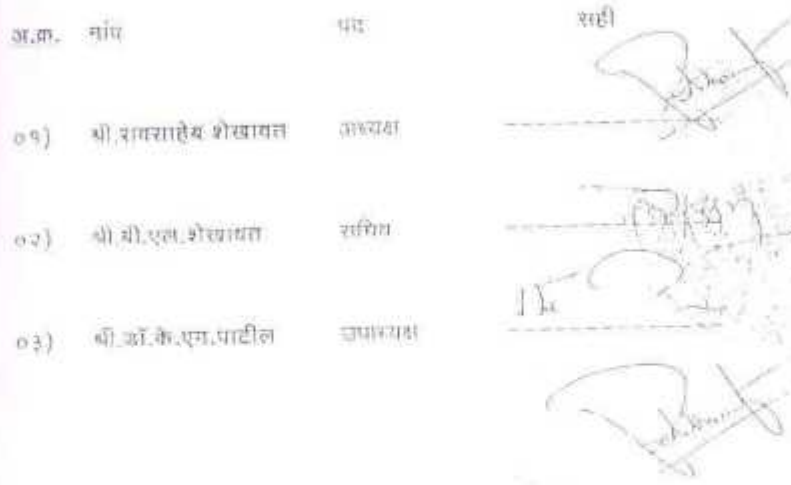 अ.क्र. नांव पद सही
०१) श्री.रावसाहेब शेखावत अध्यक्ष
०२) श्री.बी.एल.शेखावत सचिव
०३) श्री.डॉ.के.एम.पाटील उपाध्यक्ष